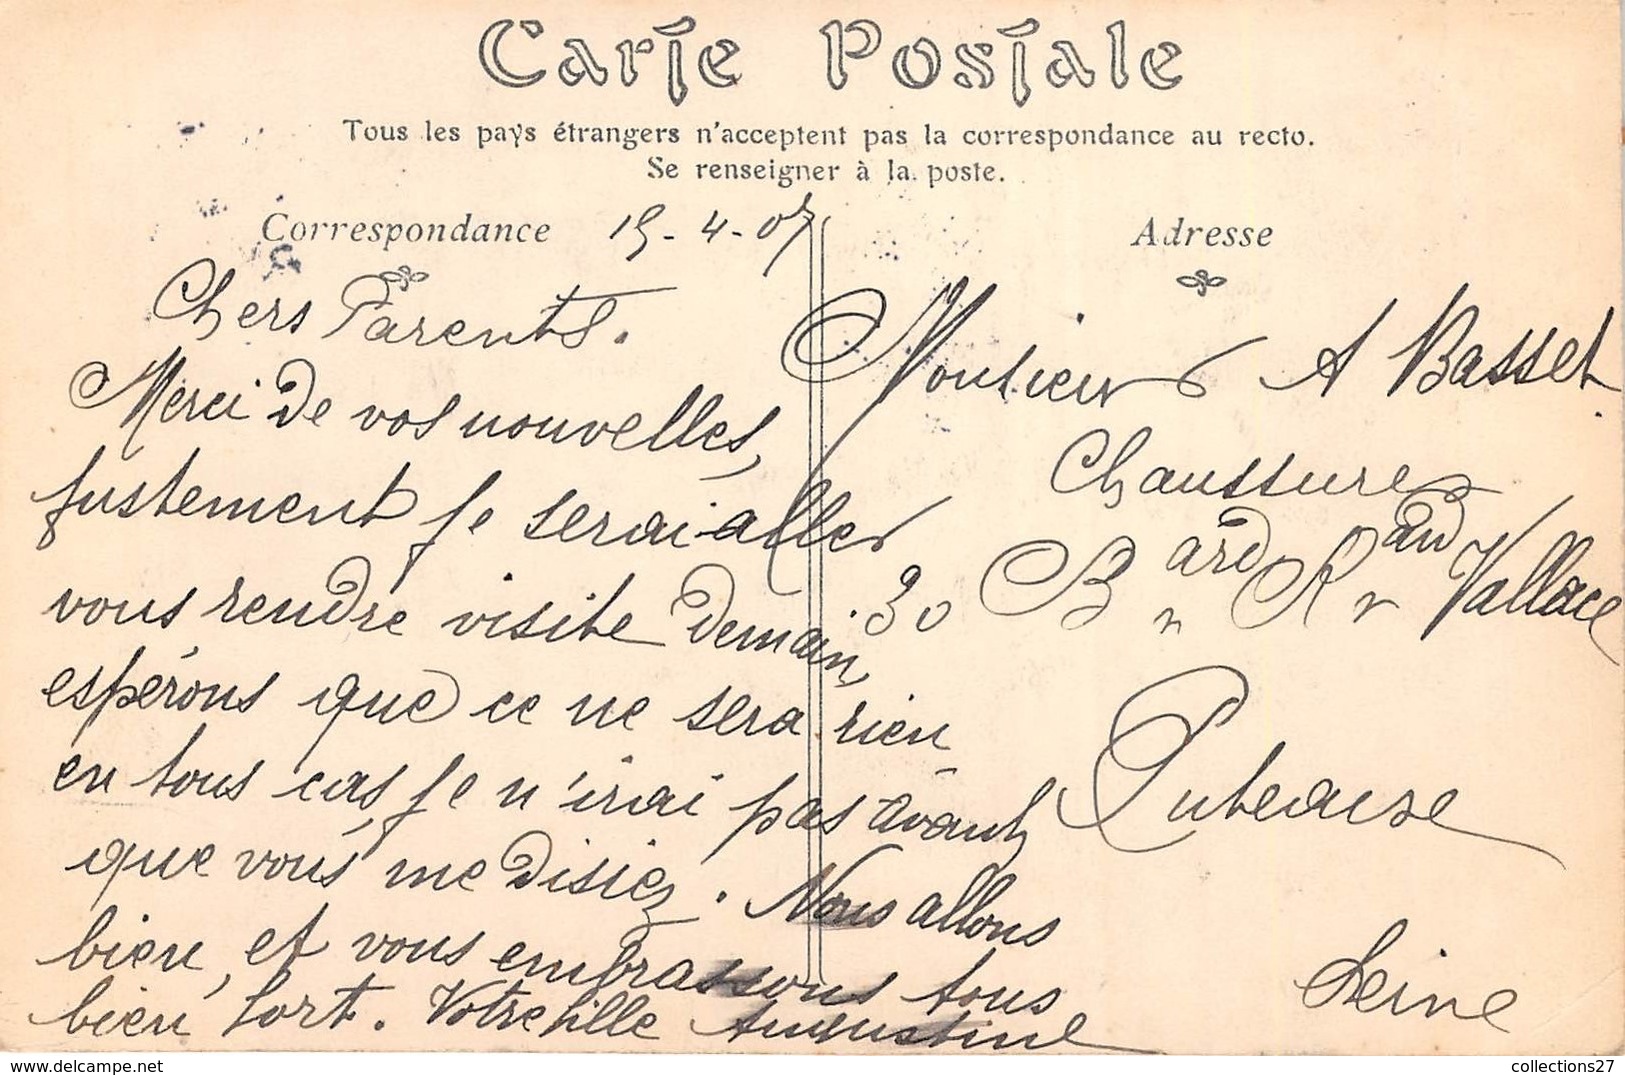 Carte Postale
Tous les pays étrangers n'acceptent pas la correspondance au recto.
Se renseigner à la poste.
Correspondance 15-4-07
Chers Parents.
Merci de vos nouvelles,
justement je serai aller
vous rendre visite demain,
espérons que ce ne sera rien
en tous cas, je n'irai pas avant
que vous me disiez. Nous allons
bien, et vous embrassons tous
bien fort. Votre fille Augustine
Adresse
Monsieur A Basset
Chaussures
30 Bard Rand Vallace
Puteaux
Seine
collections27